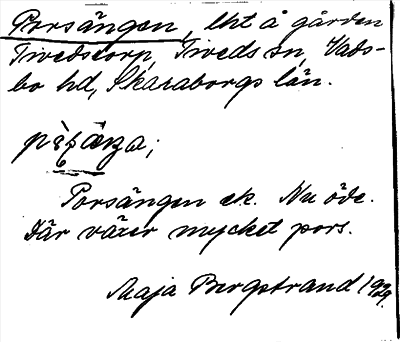 Porsängen, lht å gården
Tivedstorp, Tiveds sn, Vads-
bo hd, Skaraborgs län.
Porsängen ek. Nu öde.
Där växer mycket pors.
Maja Bergstrand 1929.